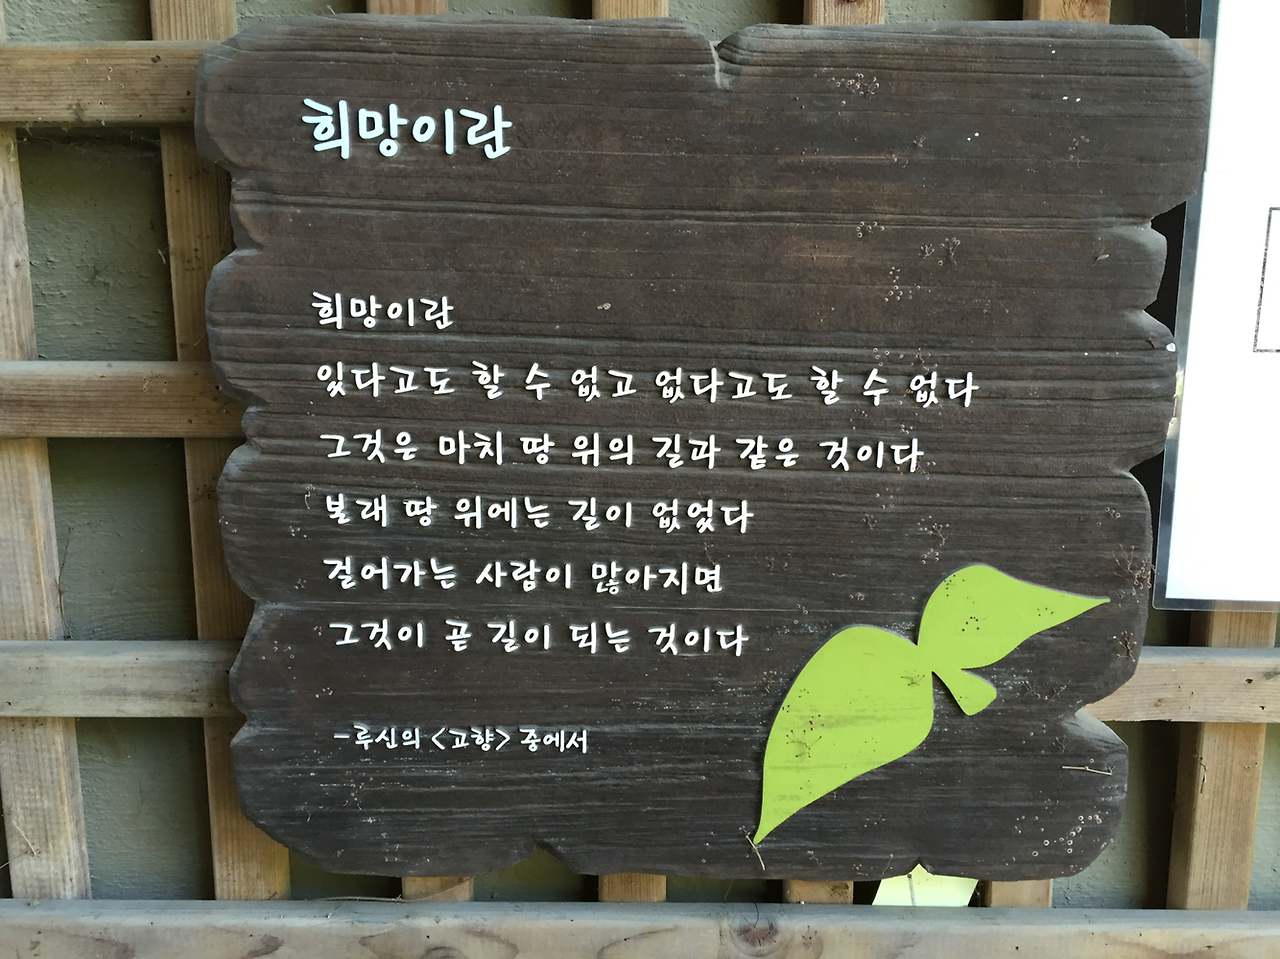 희망이란
희망이란
있다고도 할 수 없고 없다고도 할 수 없다
그것은 마치 땅 위의 길과 같은 것이다
본래 땅 위에는 길이 없었다
걸어가는 사람이 많아지면
그것이 곧 길이 되는 것이다
-루신의 <고향> 중에서